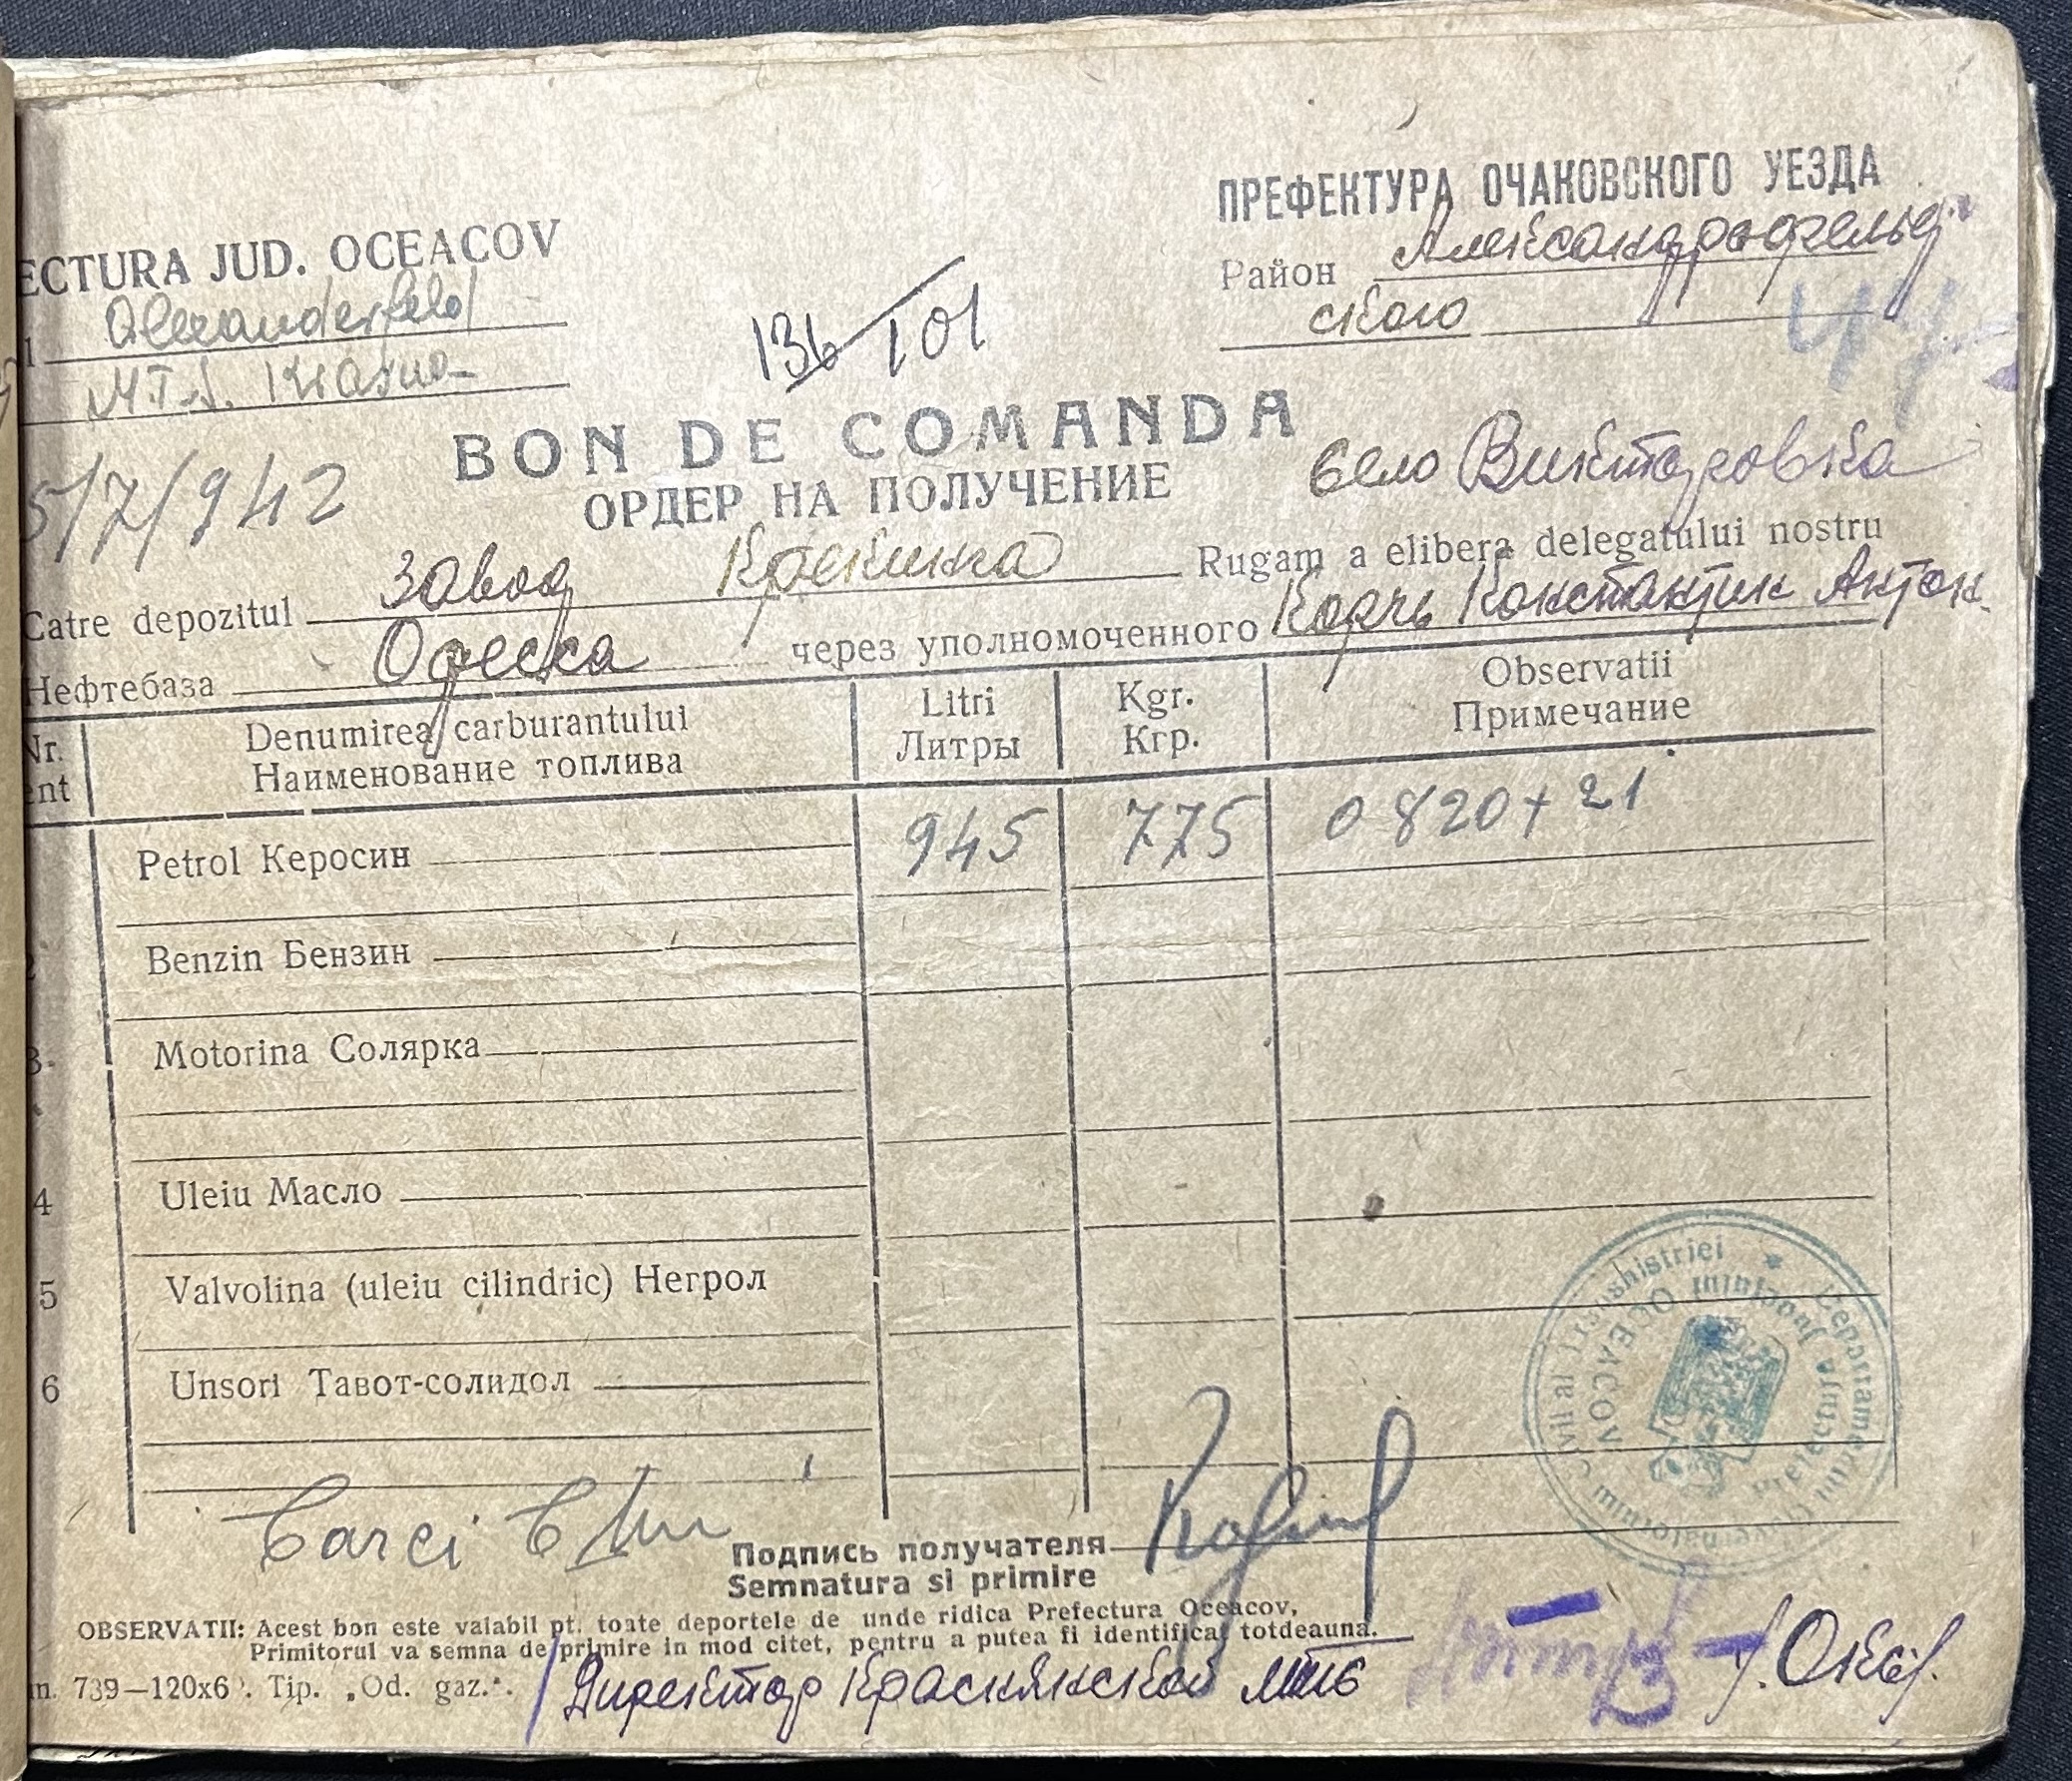 ECTURA JUD. OCEACOV
Alexanderfeld
M.T.S. Krasna
ПРЕФЕКТУРА ОЧАКОВСКОГО УЕЗДА
Район Александрфельд
ского
136 101
5/7/942
BON DE COMANDA
ОРДЕР НА ПОЛУЧЕНИЕ
село Викторовка
Catre depozitul Завод Rugam a elibera delegatului nostru
Нефтебаза Одесса через уполномоченного Корчь Константин Антон.
Nr. ent
Denumirea carburantului
Наименование топлива
Litri
Литры
Kgr.
Кгр.
Observatii
Примечание
Petrol Керосин 945 775 0820+21
Benzin Бензин
3. Motorina Солярка
4 Uleiu Масло
5 Valvolina (uleiu cilindric) Негрол
6 Unsori Тавот-солидол
Prefectura Judetului
OCEACOV
Подпись получателя
Semnatura si primire
OBSERVATII: Acest bon este valabil pt. toate deportele de unde ridica Prefectura Oceacov,
Primitorul va semna de primire in mod citet, pentru a putea fi identificat totdeauna.
739—120x6 . Tip. „Od. gaz.".
Директор Краснянской мтс